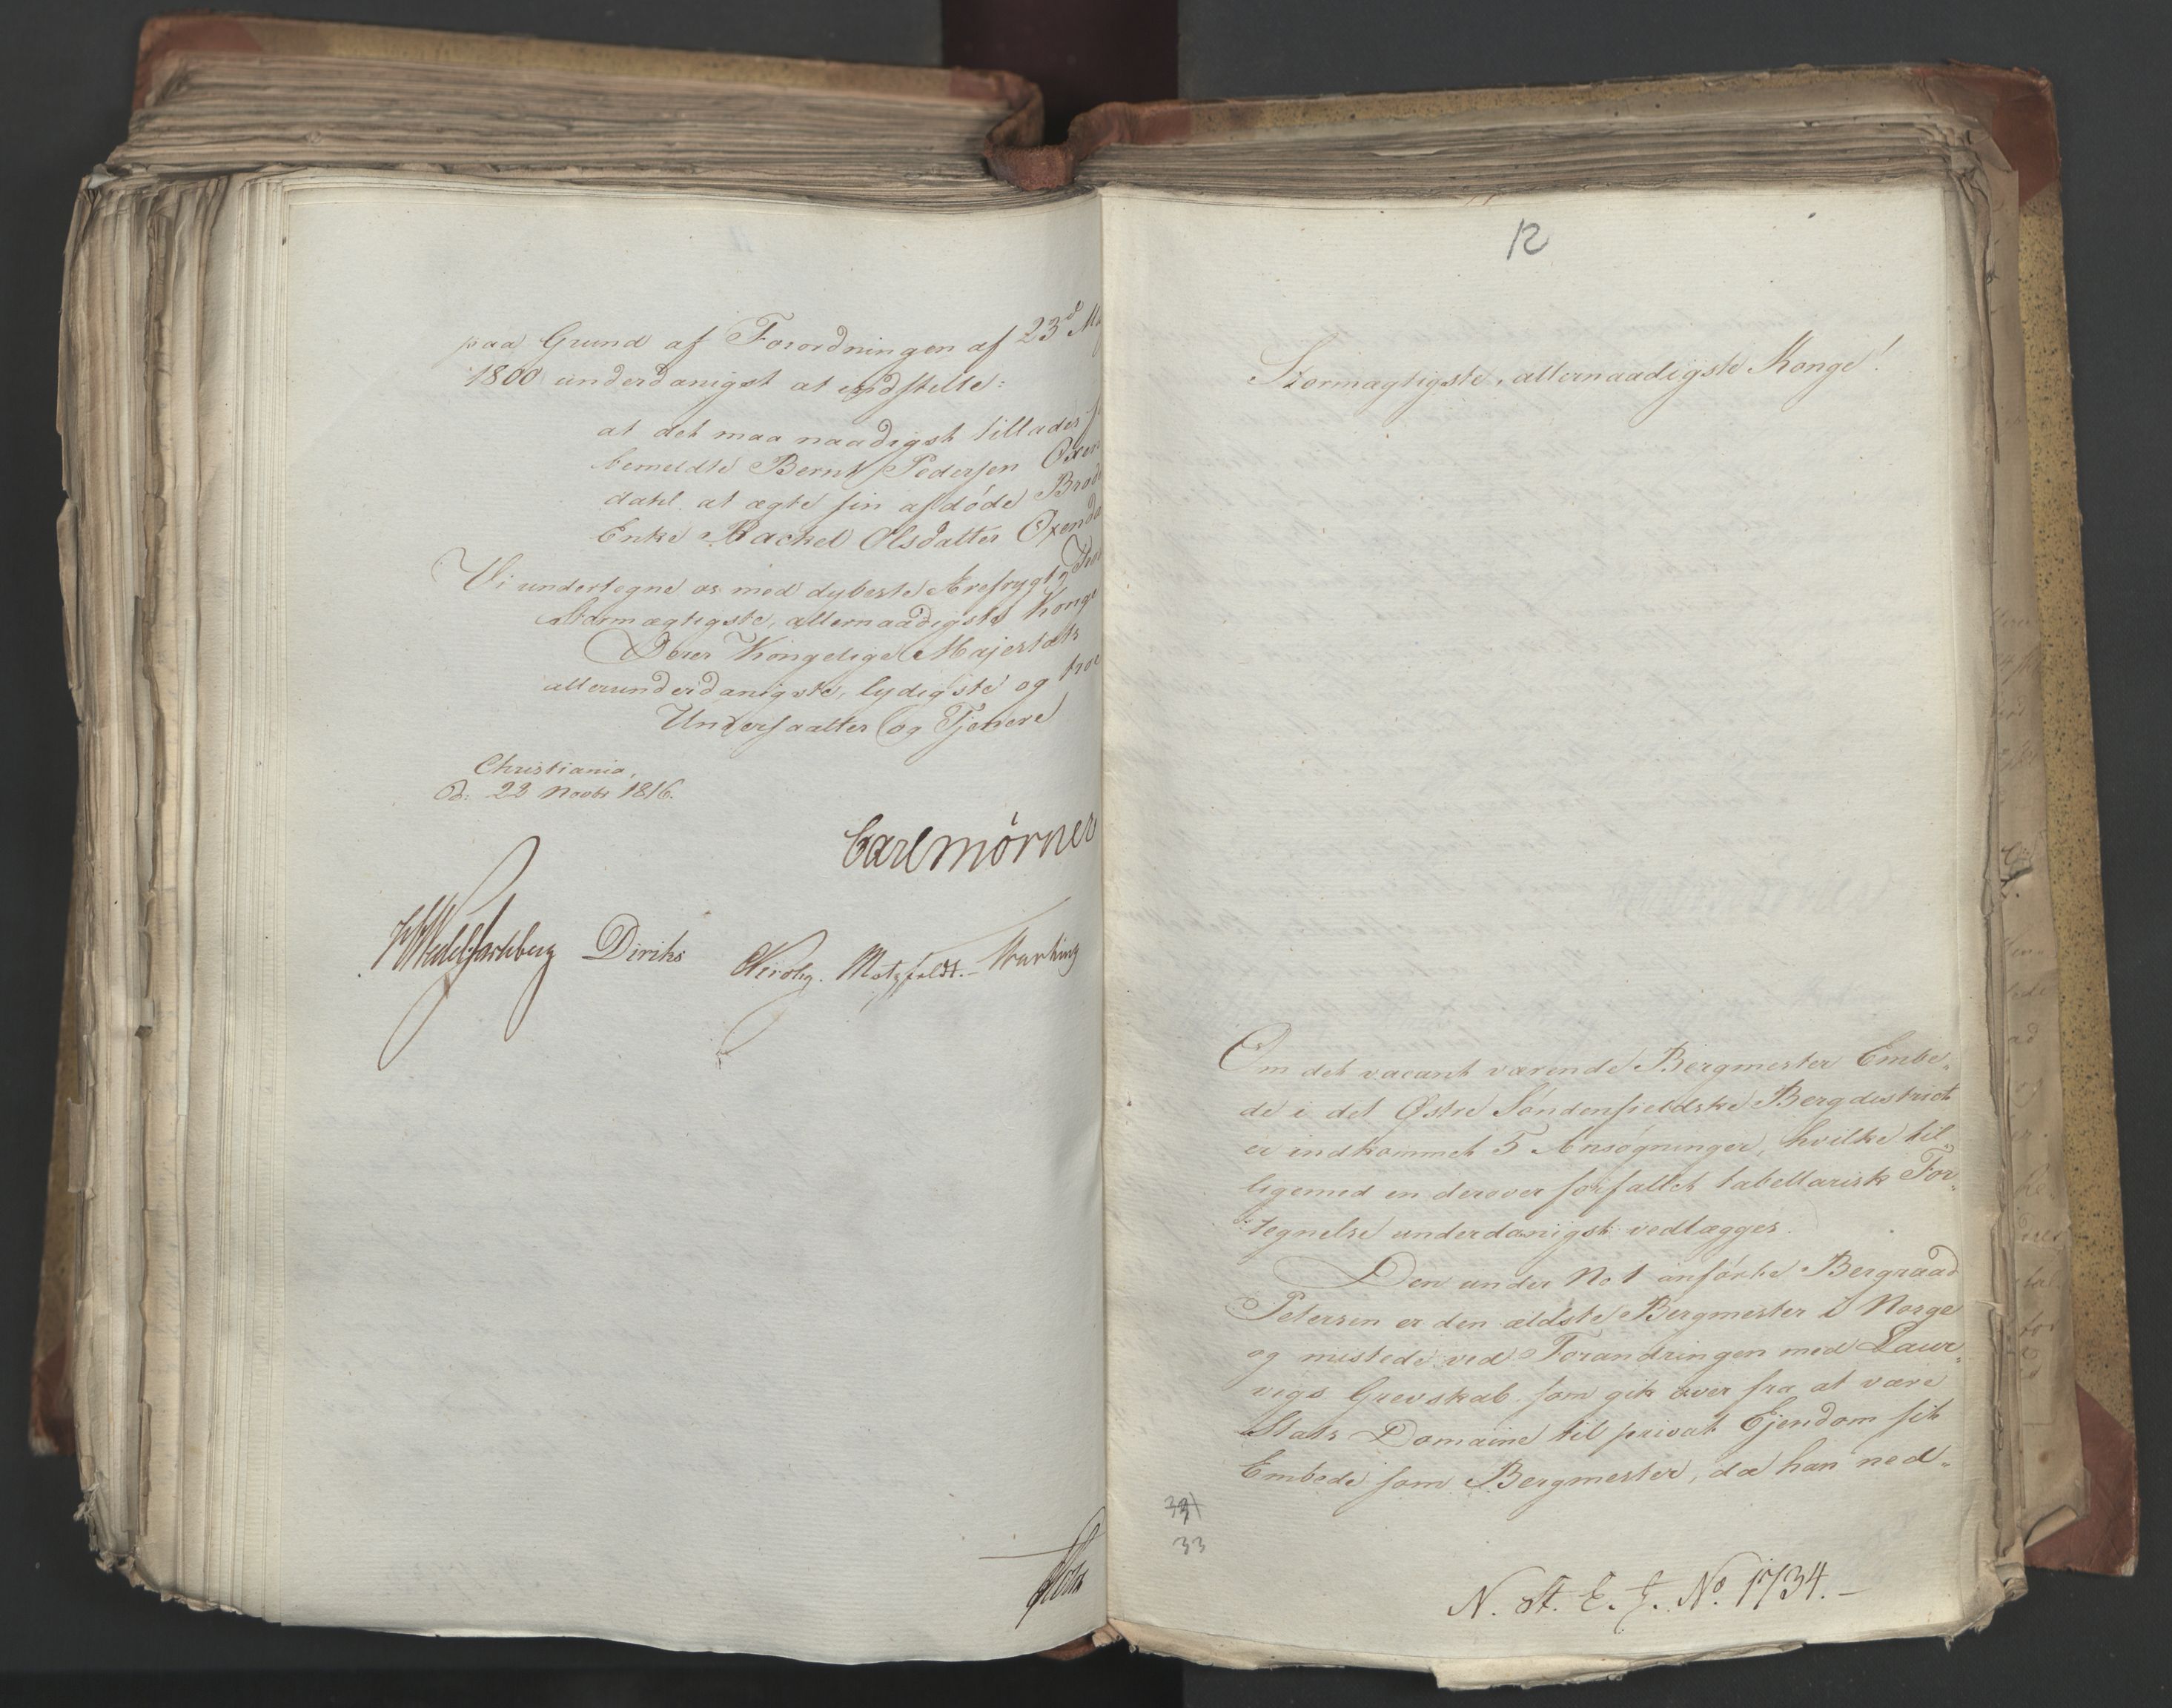 paa Grund af Forordningen af 23d
1800 underdanigst at indstille:
at det maa naadigst tillades
bemeldte Bernt Pedersen Oxen
dahl at ægte sin afdöde Brod
Enke Rachel Olsdatter Oxenda
Vi undertegne os med dybeste Ærefrygt
Stormægtigste, allernaadigste Konge
Deres Kongelige Majestæts
allerunderdanigste, lydigste og troe
Undersaatter og Tjenere
Christiania,
d: 22 Novbr 1816.
Carl Mörner
Wedel Jarlsberg Diriks Krohg. Motzfeldt.
12
Stormægtigste, allernaadigste Konge!
Om det vacant værende Bergmester Embe-
de i det Østre Söndenfieldske Bergdistrict
er indkommet 5 Ansögninger, hvilke til-
ligemed en derover forfattet tabellarisk For-
tegnelse underdanigst vedlægges.
Den under No 1 anförte Bergraad
Petersen er den ældste Bergmester i Norge
og mistede ved Forandringen med Laur-
vigs Grevskab som gik over fra at være
Stats Domaine til privat Ejendom sit
Embede som Bergmester, da han ned-
33
N. St. E. J. No. 1734.-